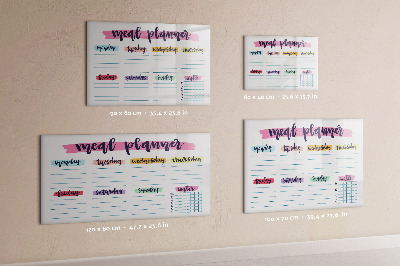 meal planner
monday tuesday wednesday thursday
friday saturday sunday notes
90 x 60 cm - 35,4 x 23,6 in
meal planner
monday tuesday wednesday thursday
friday saturday sunday notes
60 x 40 cm - 23,6 x 15,7 in
meal planner
monday tuesday wednesday thursday
friday saturday sunday notes
120 x 60 cm - 47,2 x 23,6 in
meal planner
monday tuesday wednesday thursday
friday saturday sunday notes
100 x 70 cm - 39,4 x 27,6 in